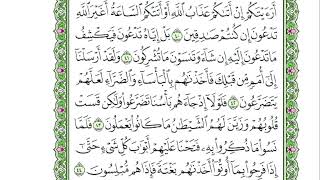 أَرَءَيْتَكُمْ إِنْ أَتَىٰكُمْ عَذَابُ ٱللَّهِ أَوْ أَتَتْكُمُ ٱلسَّاعَةُ أَغَيْرَ ٱللَّهِ
تَدْعُونَ إِن كُنتُمْ صَٰدِقِينَ ٤٠ بَلْ إِيَّاهُ تَدْعُونَ فَيَكْشِفُ
مَا تَدْعُونَ إِلَيْهِ إِن شَآءَ وَتَنسَوْنَ مَا تُشْرِكُونَ ٤١ وَلَقَدْ أَرْسَلْنَآ
إِلَىٰٓ أُمَمٍ مِّن قَبْلِكَ فَأَخَذْنَٰهُم بِٱلْبَأْسَآءِ وَٱلضَّرَّآءِ لَعَلَّهُمْ
يَتَضَرَّعُونَ ٤٢ فَلَوْلَآ إِذْ جَآءَهُم بَأْسُنَا تَضَرَّعُوا۟ وَلَٰكِن قَسَتْ
قُلُوبُهُمْ وَزَيَّنَ لَهُمُ ٱلشَّيْطَٰنُ مَا كَانُوا۟ يَعْمَلُونَ ٤٣ فَلَمَّا
نَسُوا۟ مَا ذُكِّرُوا۟ بِهِۦ فَتَحْنَا عَلَيْهِمْ أَبْوَٰبَ كُلِّ شَىْءٍ حَتَّىٰٓ
إِذَا فَرِحُوا۟ بِمَآ أُوتُوٓا۟ أَخَذْنَٰهُم بَغْتَةً فَإِذَا هُم مُّبْلِسُونَ ٤٤